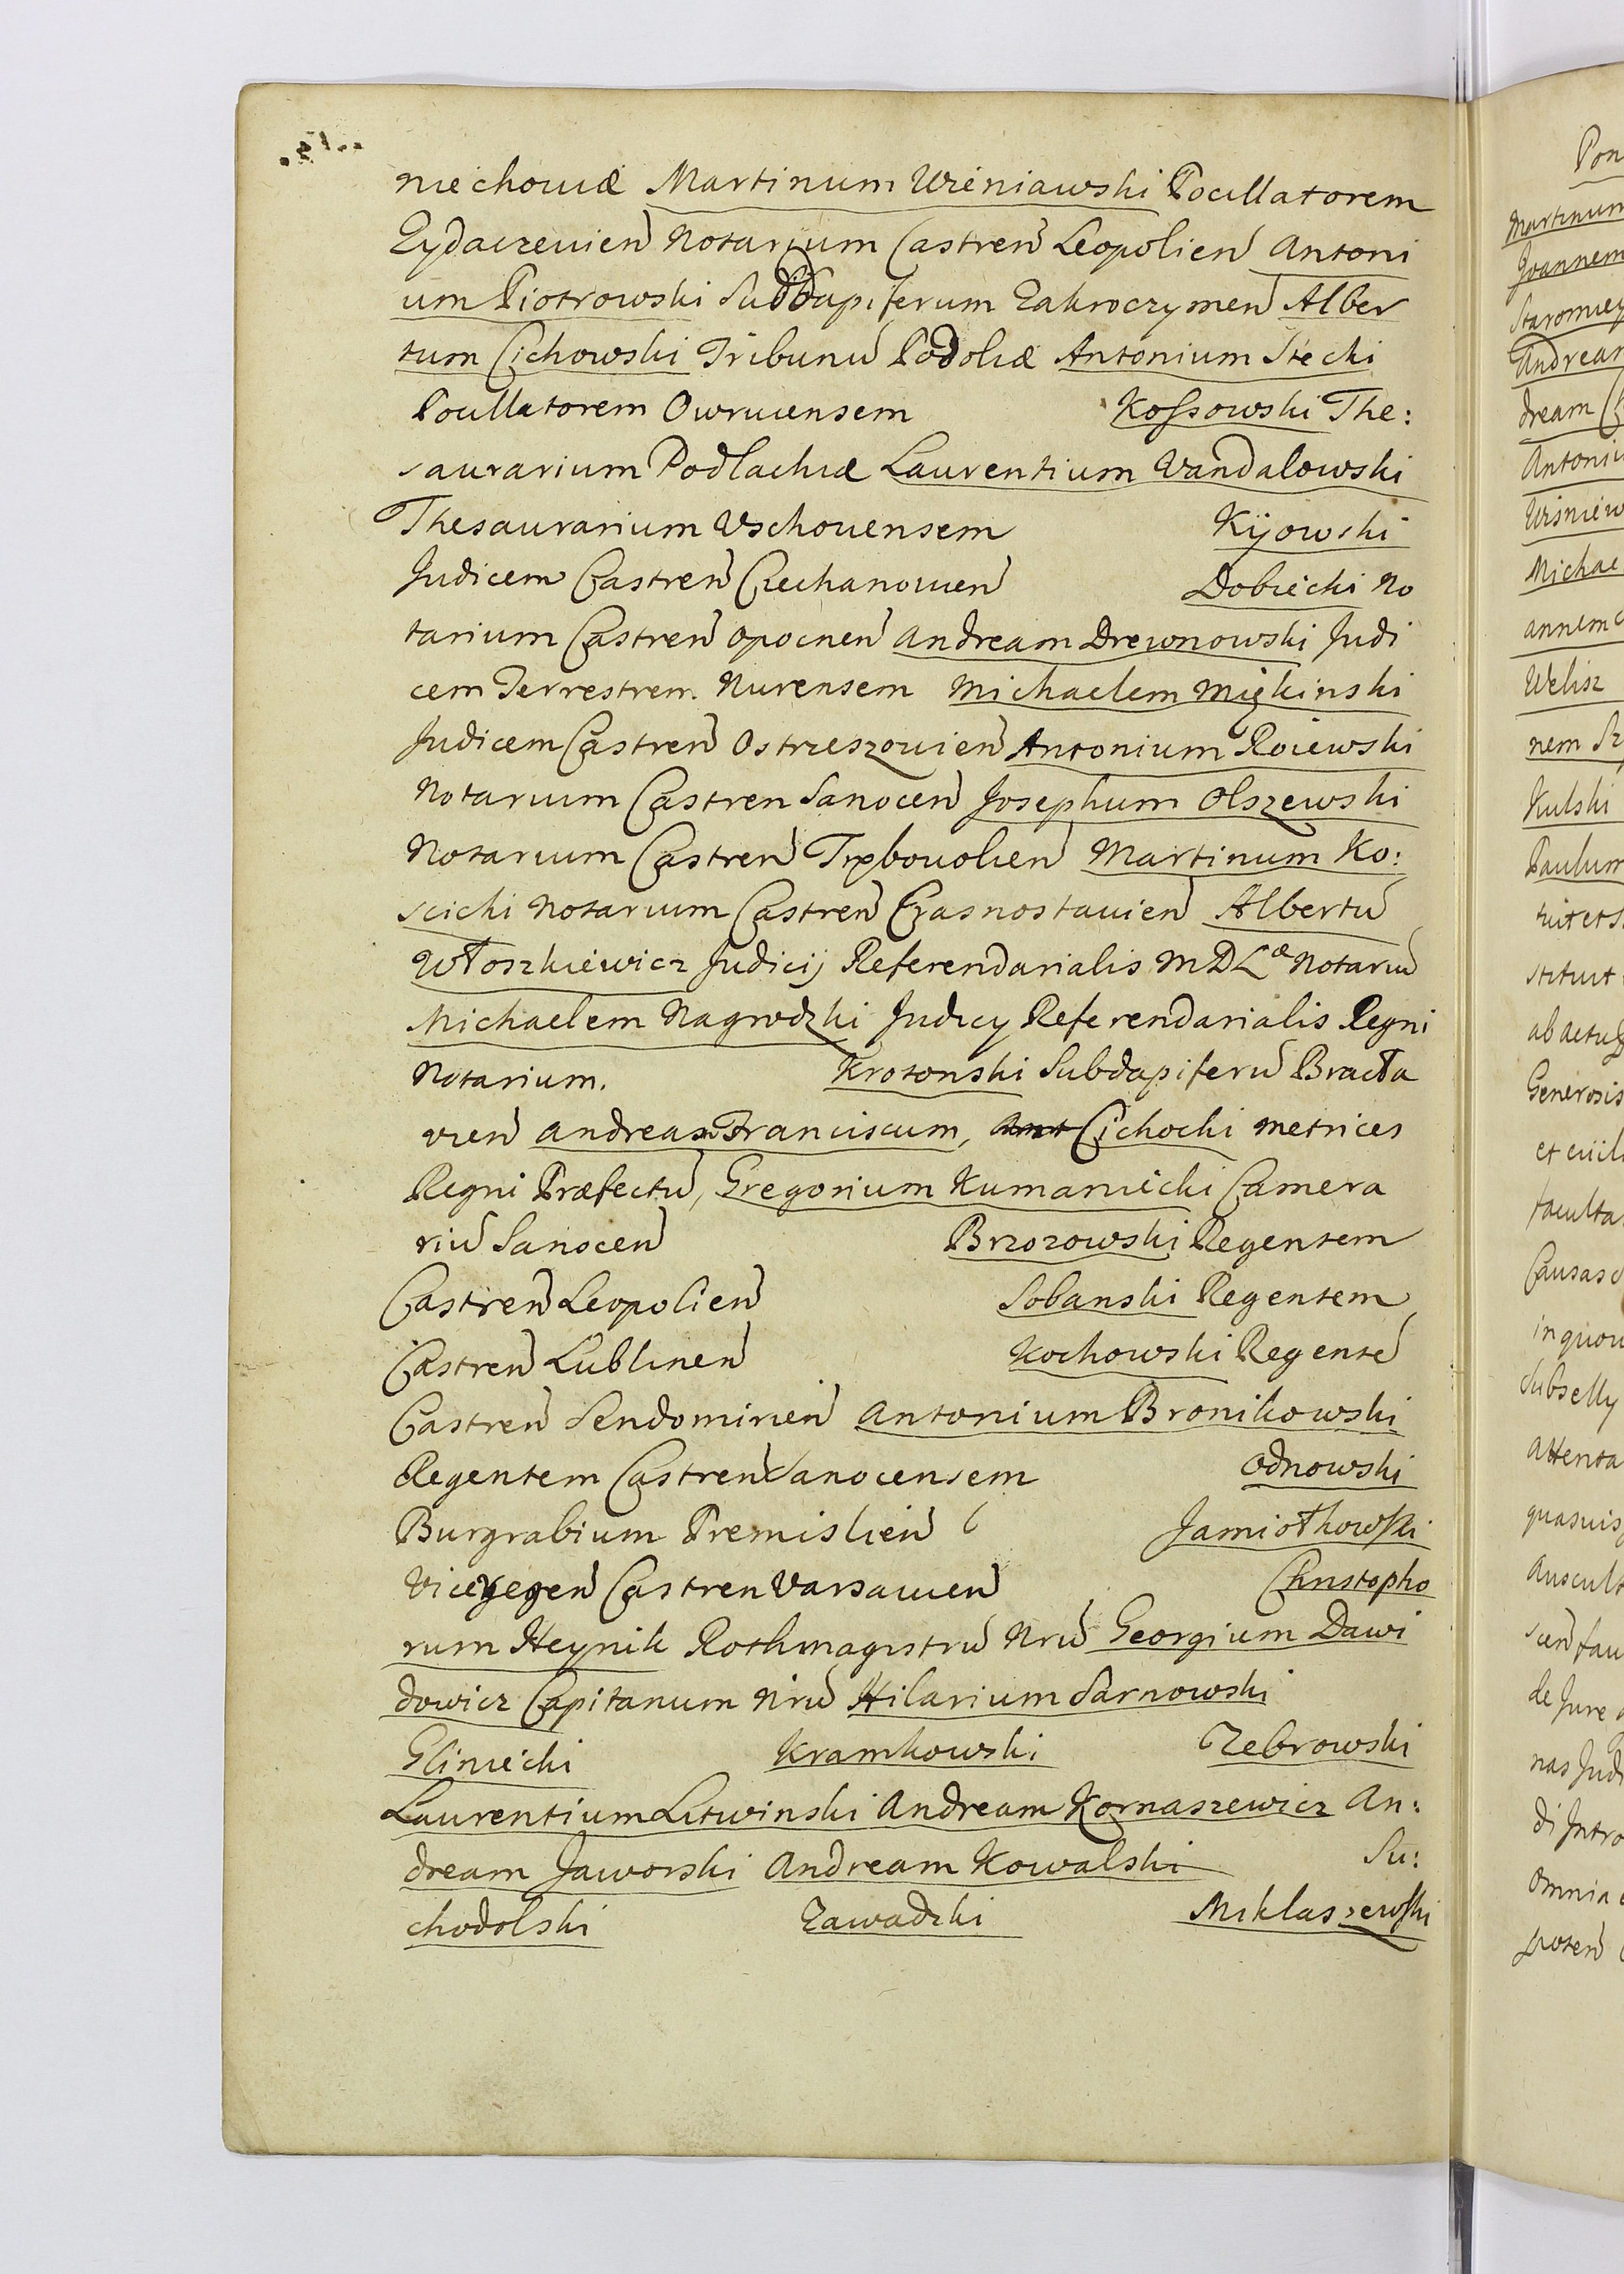 niechoviæ Martinum Wieniawski Pocillatorem
Zydaczevien Notarium Castren Leopolien Antoni
um Piotrowski Subdapiferum Zakroczymen Alber
tum Cichowski Tribunu Podoliæ Antonium Stecki
Pocillatorem Owrucensem Kossowski The:
saurarium Podlachiæ Laurentium Wandalowski
Thesaurarium Vschovensem Kijowski
Judicem Castren Ciechanovien Dobiecki No
tarium Castren Opocnen Andream Drewnowski Judi
cem Terrestrem Nurensem Michaelem Miękinski
Judicem Castren Ostrzeszovien Antonium Roiewski
Notarium Castren Sanocen Josephum Olszewski
Notarium Castren Trębovolien Martinum Ko:
scicki Notarium Castren Crasnostavien Albertu
Włoszkiewicz Judicij Referendarialis M D Læ Notariu
Michaelem Nagrodzki Judicy Referendarialis Regni
Notarium. Krotonski Subdapiferu Bracła
vien Andream Franciscum, Cichocki Metrices
Regni Præfectu, Gregorium Kumaniecki Camera
riu Sanocen Brzozowski Regentem
Castren Leopolien Sobanski Regentem
Castren Lublinen Kochowski Regente
Castren Sendomirien Antonium Bronikowski
Regentem Castren Sanocensem Odnowski
Burgrabium Premislien Jamiołkowski
Viceregen Castren Varsavien Christopho
rum Heynik Rothmagistru Nru Georgium Dawi
dowicz Capitanum Nru Hilarium Sarnowski
Gliniecki Kramkowski Zebrowski
Laurentium Litwinski Andream Kornaszewicz An:
dream Jaworski Andream Kowalski Su:
chodolski Zawadzki Miklaszewski
Martinum
Joannem
dream
Kulski
Paulum
stituit
Generosis
Causas
omnia